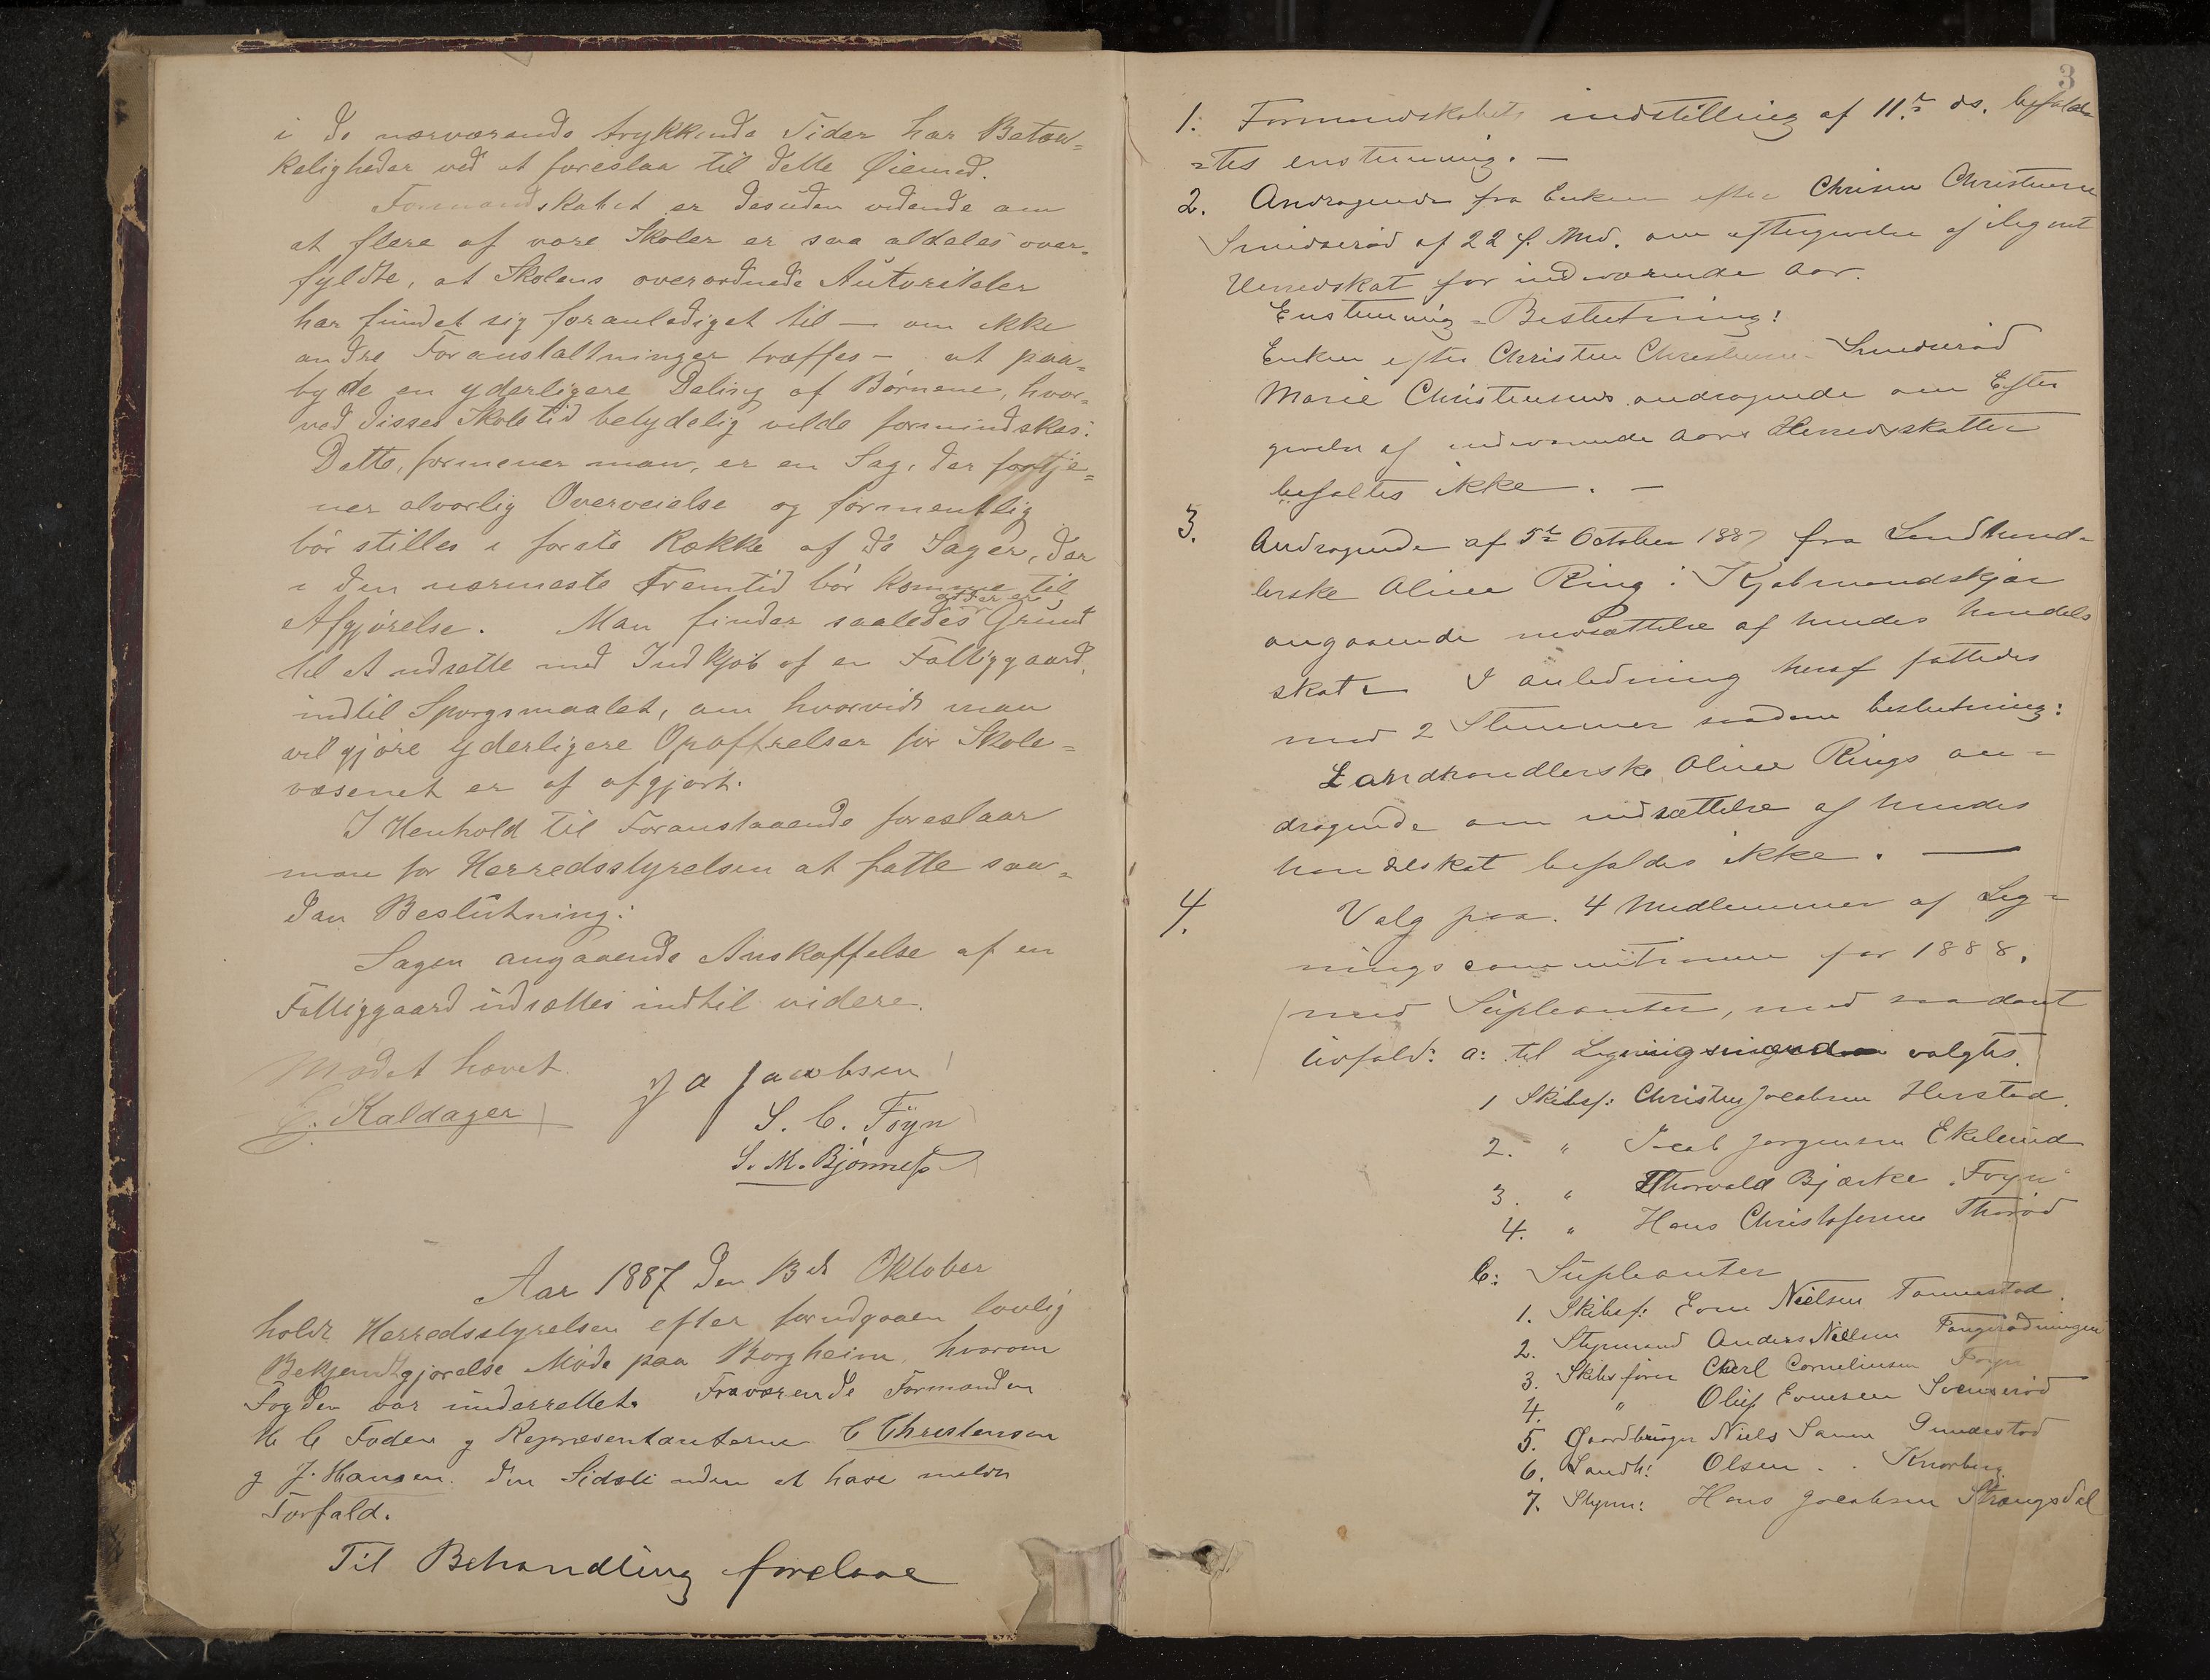 i de nærværende trykkende Tider har Betæn=
keligheder ved at foreslaa til dette Øiemed.
Formandskabet er desuden vidende om
at flere af vore Skoler er saa aldeles over-
fyldte, at Skolens overordnede Autoriteter
har fundet sig foranlediget til — om ikke
andre Foranstaltninger træffes — at paa-
byde en yderligere Deling af Børnene, hvor-
ved disses Skoletid betydelig vilde formindskes.
Dette, formener man, er en Sag, der fortje=
ner alvorlig Overveielse og formentlig
bør stilles i første Række af de Sager, der
i den nærmeste Fremtid bør komme til
Afgjørelse. Man finder saaledes at der er Grund
til at udsætte med Indkjøb af en Fattiggaard,
indtil Spørgsmaalet, om hvorvidt man
vil gjøre yderligere Opoffrelser for Skole=
væsenet er af afgjort.
I Henhold til Foranstaaende foreslaar
man for Herredsstyrelsen at fatte saa-
dan Beslutning:
Sagen angaaende Anskaffelse af en
Fattiggaard udsættes indtil videre.
Mødet hævet.
J A Jacobsen
C. Kaldager
S. C. Föyn
S. M. Bjønness
Aar 1887 den 13de Oktober
holdt Herredsstyrelsen efter forudgaaen lovlig
Bekjendtgjørelse Møde paa Borgheim, hvorom
Fogden var underrettet. Fraværende Formanden
H C Foden og Repræsentanterne C Christensen
g J. Hansen. den Sidste uden at have meldt
Forfald.
Til Behandling forelaae
3
1. Formandskabets indstilling af 11te ds. bifald-
=tes enstemmig. —
2. Andragende fra Enken efter Christen Christensen
Smidsrød af 22 f. Md. om eftergivelse af ilignet
Herredskat for indeværende Aar.
Enstemmig = Beslutning!
Enken efter Christen Christensen Smidsrød
Marie Christensens andragende om Efter
givelse af indeværende Aars Herredsskatten
bifaltes ikke. —
3. Andragende af 5te October 1887 fra Landhand-
lerske Aline Ring i Kjøbmandskjær
angaaende nedsættelse af hendes handels
skat. I anledning heraf fattedes
med 2 Stemmer saadan beslutning:
Landhandlerske Aline Rings an-
dragende om nedsættelse af hendes
handelskat bifaldes ikke. —
4. Valg paa 4 Medlemmer af Lig-
ningscommitionen for 1888.
med Supleanter, med saadant
Udfald: a: til Ligningsmænd valgtes
1 Skibsf: Christen Jacobsen Herstad.
2. " Jacob Jørgensen Ekelund
3. " Thorvald Bjærke "Foyn"
4. " Hans Christofersen Thorød
b: Supleanter
1. Skibsf: Even Nielsen
2. Styrmand Anders Nielsen
3. Skibsfører Carl Corneliusen Foyn
4. " Oluf Evensen Svenserød
5. Gaardbruger Niels Gundestad
6. Landh: Olsen . . Knarberg.
7. Styrm: Hans Jacobsen Strengsdal